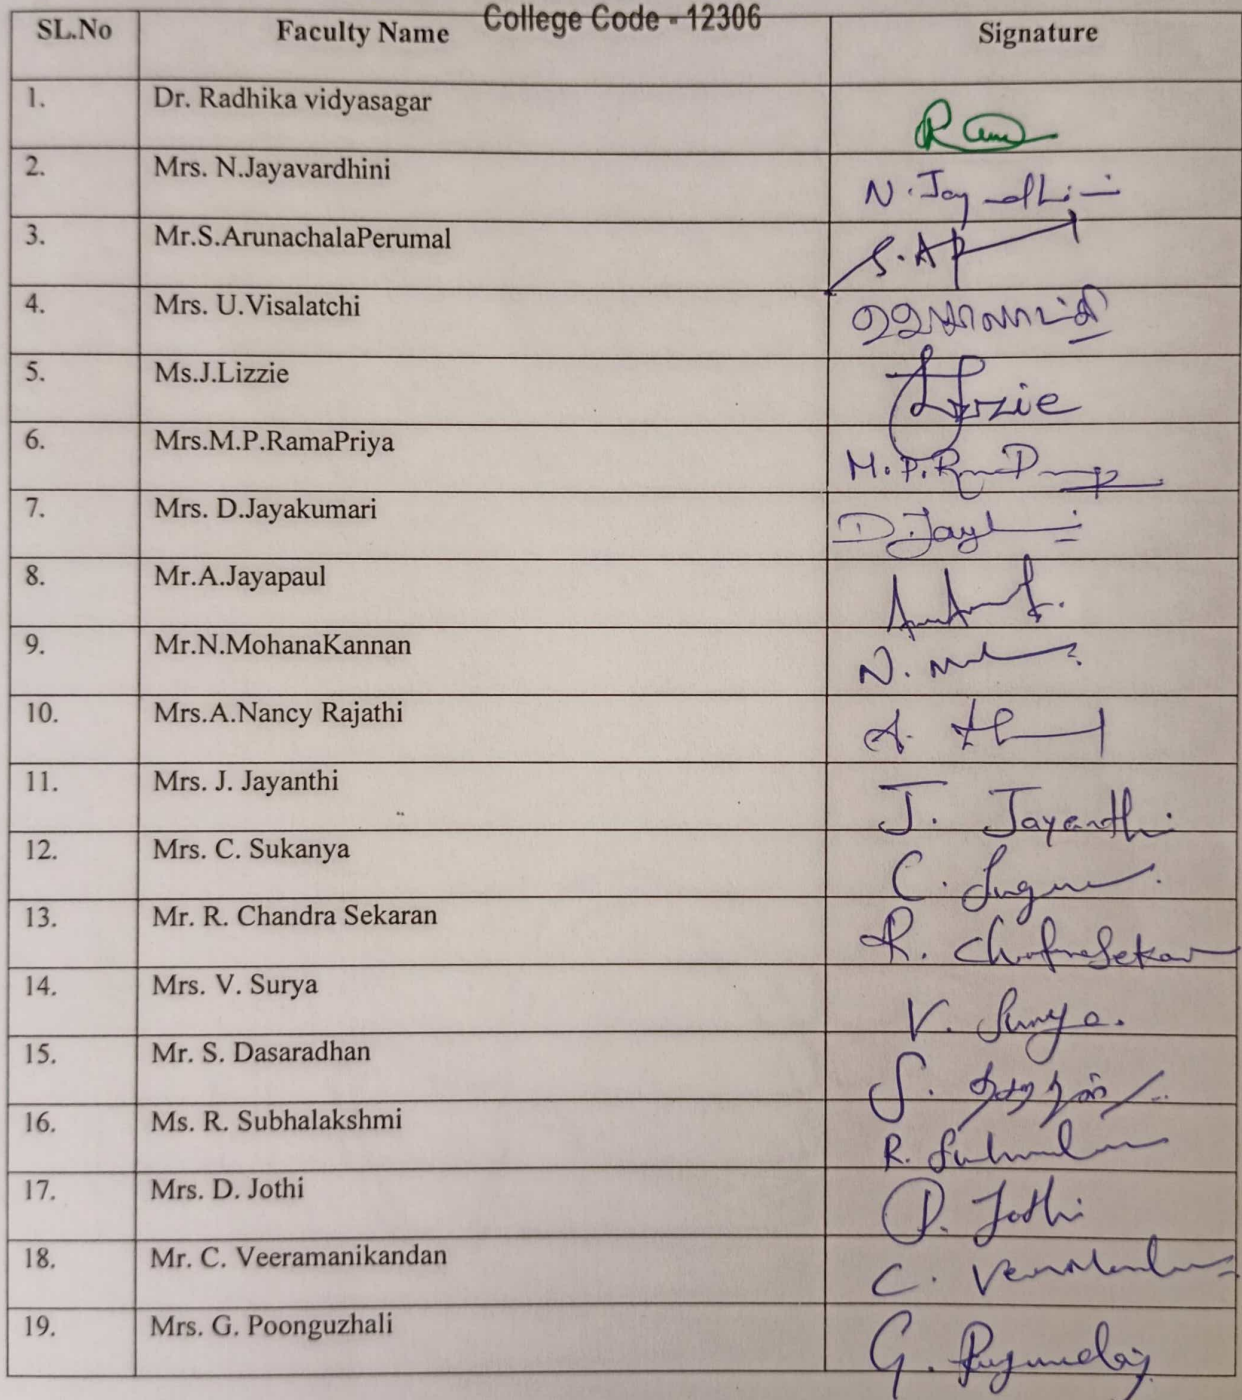 College Code - 12306
SL.No Faculty Name Signature
1. Dr. Radhika vidyasagar
2. Mrs. N.Jayavardhini N.
3. Mr.S.ArunachalaPerumal S.AP
4. Mrs. U.Visalatchi
5. Ms.J.Lizzie Lizzie
6. Mrs.M.P.RamaPriya M.P.
7. Mrs. D.Jayakumari D.
8. Mr.A.Jayapaul
9. Mr.N.MohanaKannan N.
10. Mrs.A.Nancy Rajathi A.
11. Mrs. J. Jayanthi J. Jayanthi
12. Mrs. C. Sukanya C.
13. Mr. R. Chandra Sekaran R.
14. Mrs. V. Surya V. Surya.
15. Mr. S. Dasaradhan S.
16. Ms. R. Subhalakshmi R.
17. Mrs. D. Jothi D. Jothi
18. Mr. C. Veeramanikandan C.
19. Mrs. G. Poonguzhali G.